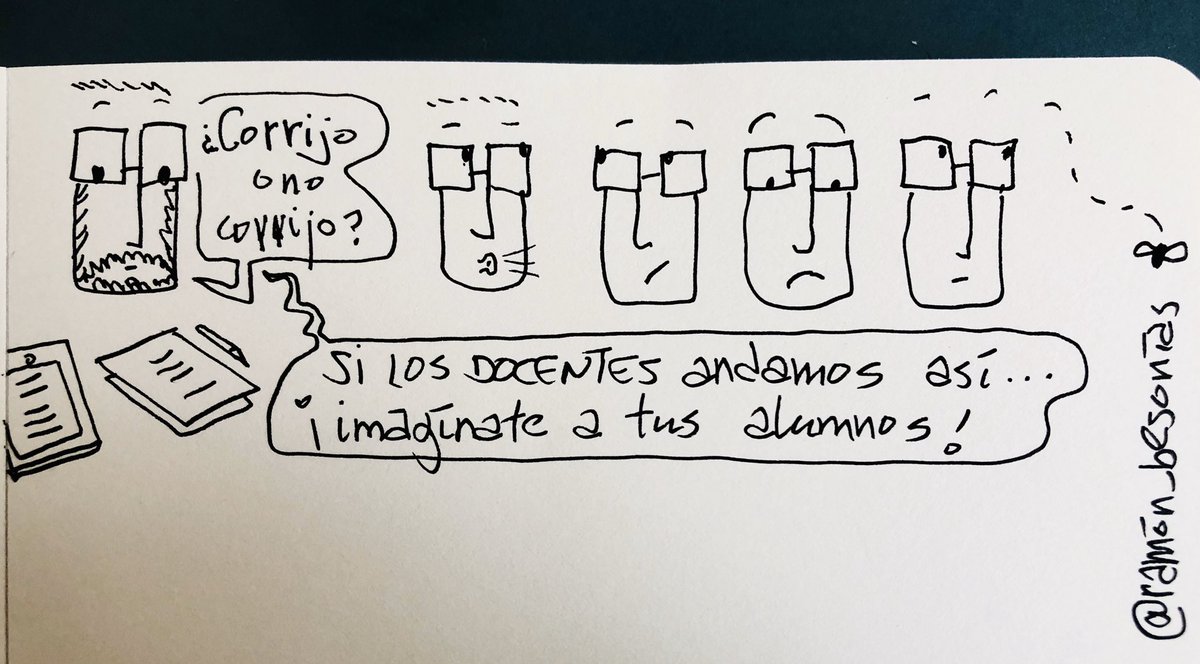 ¿Corrijo
o no
corrijo?
Si LOS DOCENTES andamos así...
¡imagínate a tus alumnos!
@ramón_besonías